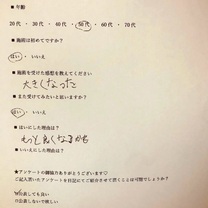 ■ 年齢
20代 ・ 30代 ・ 40代 ・ 50代 ・ 60代 ・ 70代
■ 施術は初めてですか?
はい ・ いいえ
■ 施術を受けた感想を教えてください
大きくなった
■ また受けてみたいと思いますか?
はい ・ いいえ
■ はいにした理由は?
もっと良くなるから
■ いいえにした理由は?
★アンケートの御協力ありがとうございます♡
ご記入頂いたアンケートを日記にてご紹介させて頂くことは可能でしょうか?
公表しても良い
公表しないで欲しい